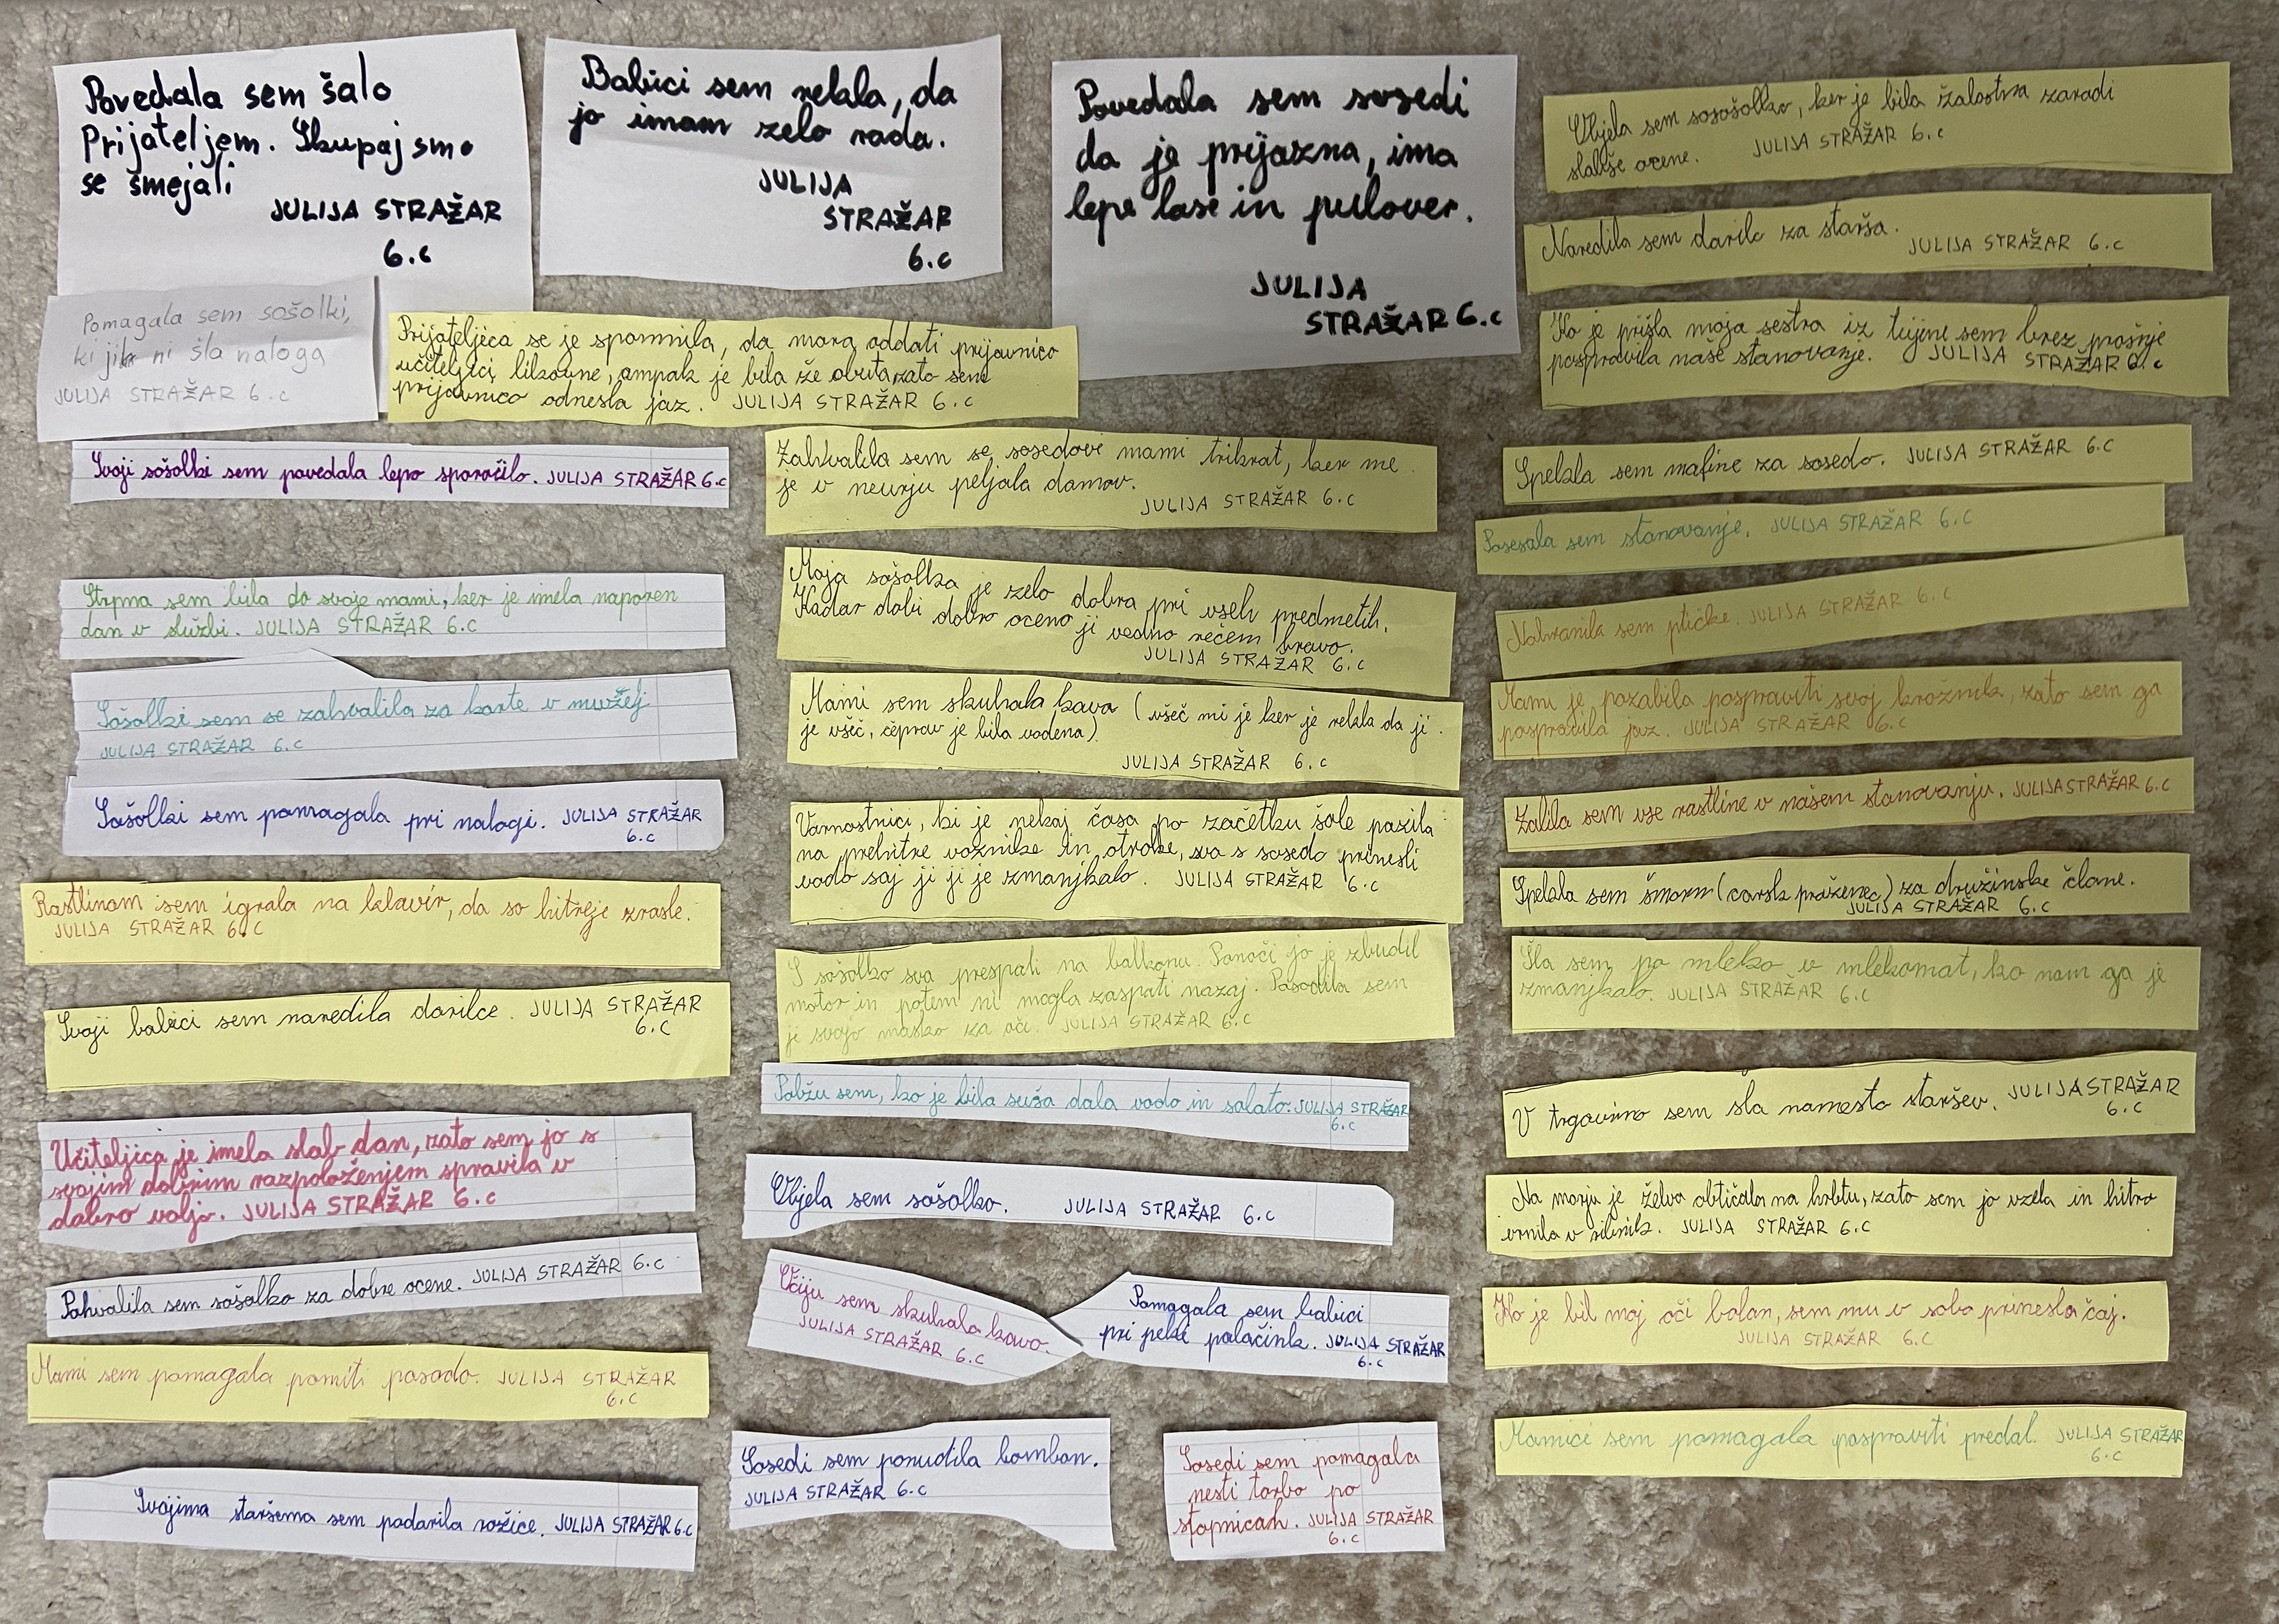 Povedala sem šalo
Prijateljem. Skupaj smo
se smejali
JULIJA STRAŽAR
6.c
Babici sem rekla, da
jo imam zelo rada.
JULIJA
STRAŽAR
6.c
Povedala sem sosedi
da je prijazna, ima
lepe lase in pulover.
JULIJA
STRAŽAR 6.c
Pomagala sem sošolki,
ki ji ni šla naloga
JULIJA STRAŽAR 6.c
Prijateljica se je spomnila, da mora oddati prijavnico
učiteljici likovne, ampak je bila že obuta, zato sem
prijavnico odnesla jaz. JULIJA STRAŽAR 6.c
Svoji sošolki sem povedala lepo sporočilo. JULIJA STRAŽAR 6.c
Strpna sem bila do svoje mami, ker je imela naporen
dan v službi. JULIJA STRAŽAR 6.c
Sošolki sem se zahvalila za karte v muzej
JULIJA STRAŽAR 6.c
Sošolki sem pomagala pri nalogi. JULIJA STRAŽAR
6.c
Rastlinam sem igrala na klavir, da so hitreje zrasle.
JULIJA STRAŽAR 6.c
Svoji babici sem naredila darilce. JULIJA STRAŽAR
6.c
Učiteljica je imela slab dan, zato sem jo s
svojim dobrim razpoloženjem spravila v
dobro voljo. JULIJA STRAŽAR 6.c
Pohvalila sem sošolko za dobre ocene. JULIJA STRAŽAR 6.c
Mami sem pomagala pomiti posodo. JULIJA STRAŽAR
6.c
Svojima staršema sem podarila rožice. JULIJA STRAŽAR 6.c
Zahvalila sem se sosedovi mami trikrat, ker me
je v neurju peljala domov.
JULIJA STRAŽAR 6.c
Moja sošolka je zelo dobra pri vseh predmetih.
Kadar dobi dobro oceno ji vedno rečem bravo.
JULIJA STRAŽAR 6.c
Mami sem skuhala kavo (všeč mi je ker je rekla da ji
je všeč, čeprav je bila vodena).
JULIJA STRAŽAR 6.c
Varnostnici, ki je nekaj časa po začetku šole pazila
na prehitre voznike in otroke, sva s sosedo prinesli
vodo saj ji ji je zmanjkalo. JULIJA STRAŽAR 6.c
S sošolko sva prespali na balkonu. Ponoči jo je zbudil
motor in potem ni mogla zaspati nazaj. Posodila sem
ji svojo masko za oči. JULIJA STRAŽAR 6.c
Polžu sem, ko je bila suša dala vodo in salato. JULIJA STRAŽAR
6.c
Objela sem sošolko. JULIJA STRAŽAR 6.c
Očiju sem skuhala kavo.
JULIJA STRAŽAR 6.c
Pomagala sem babici
pri peki palačink. JULIJA STRAŽAR
6.c
Sosedi sem ponudila bombon.
JULIJA STRAŽAR 6.c
Sosedi sem pomagala
nesti torbo po
stopnicah. JULIJA STRAŽAR
6.c
Objela sem sosošolko, ker je bila žalostna zaradi
slabše ocene. JULIJA STRAŽAR 6.c
Naredila sem darilo za starša.
JULIJA STRAŽAR 6.c
Ko je prišla moja sestra iz tujine sem brez prošnje
pospravila naše stanovanje. JULIJA STRAŽAR 6.c
Spekla sem mafine za sosedo. JULIJA STRAŽAR 6.c
Posesala sem stanovanje. JULIJA STRAŽAR 6.c
Nahranila sem ptičke. JULIJA STRAŽAR 6.c
Mami je pozabila pospraviti svoj krožnik, zato sem ga
pospravila jaz. JULIJA STRAŽAR 6.c
Zalila sem vse rastline v našem stanovanju. JULIJA STRAŽAR 6.c
Spekla sem šmorn (carski praženec) za družinske člane.
JULIJA STRAŽAR 6.c
Šla sem po mleko v mlekomat, ko nam ga je
zmanjkalo. JULIJA STRAŽAR 6.c
V trgovino sem šla namesto staršev. JULIJA STRAŽAR
6.c
Na morju je želva obtičala na hrbtu, zato sem jo vzela in hitro
vrnila v ribnik. JULIJA STRAŽAR 6.c
Ko je bil moj oči bolan, sem mu v sobo prinesla čaj.
JULIJA STRAŽAR 6.c
Mamici sem pomagala pospraviti predal. JULIJA STRAŽAR
6.c